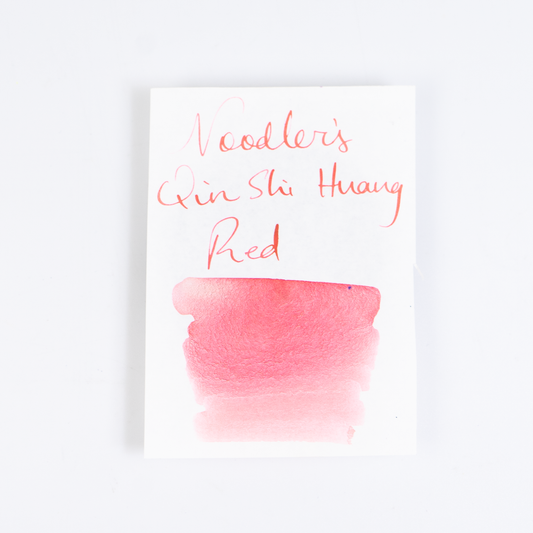 Noodler's
Qin Shi Huang
Red